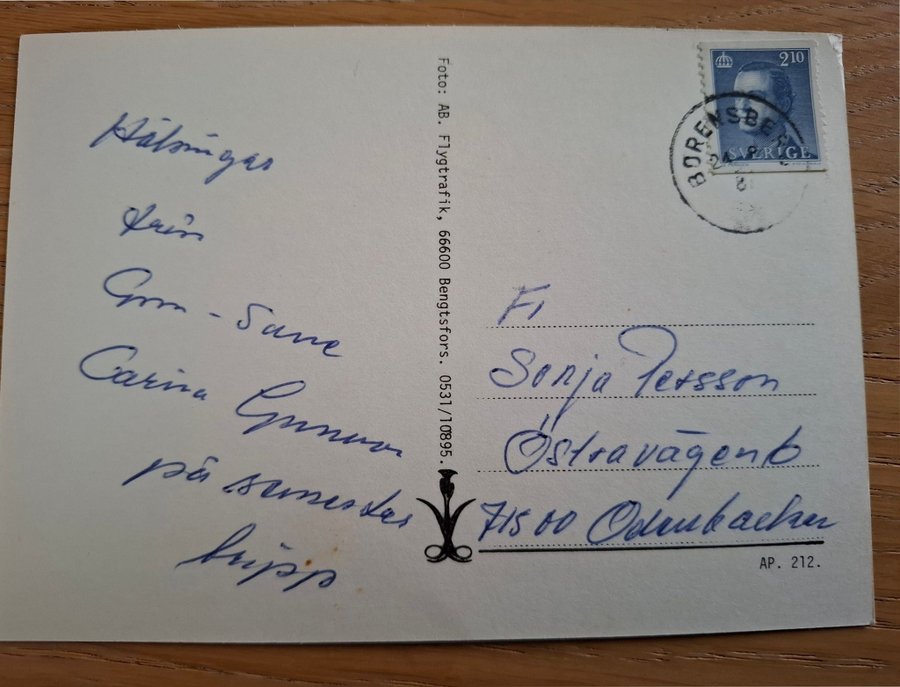 Hälsingar
från
Gun-Sune
Carina Gunnar
på semester
tripp
Foto: AB. Flygtrafik, 66600 Bengtsfors. 0531/10895.
2 10
SVERIGE
BORENSBER
24 8
Fr
Sonja Persson
Östravägen 6
71500 Odensbacken
AP. 212.